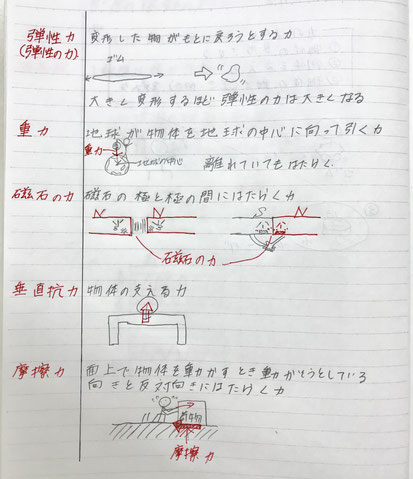 弾性力 変形した物がもとに戻ろうとする力
(弾性の力) ゴム
大きく変形するほど弾性の力は大きくなる
重力 地球が物体を地球の中心に向って引く力
重力
地球の中心 離れていてもはたらく
磁石の力 磁石の極と極の間にはたらく力
N N S N
磁石の力
垂直抗力 物体の支える力
摩擦力 面上で物体を動かすとき動かそうとしている
向きと反対向きにはたらく力
荷物
摩擦力